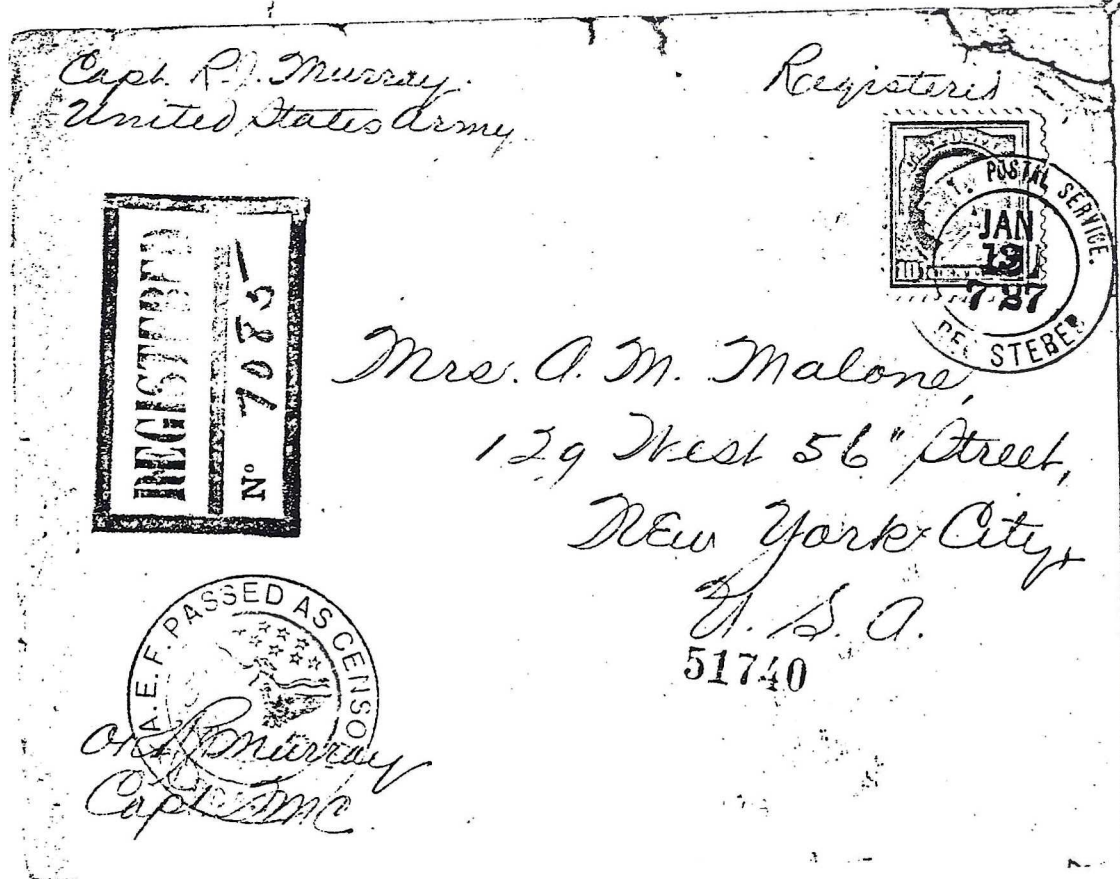 Capt. R.J. Murray.
United States Army
Registered
POSTAL SERVICE.
JAN
19
7 87
REGISTERED
Nº 7085
Mrs. A. M. Malone,
129 West 56" Street,
New York City,
U. S. A.
51740
A.E.F. PASSED AS CENSO
OK RJ Murray
Capt. MC